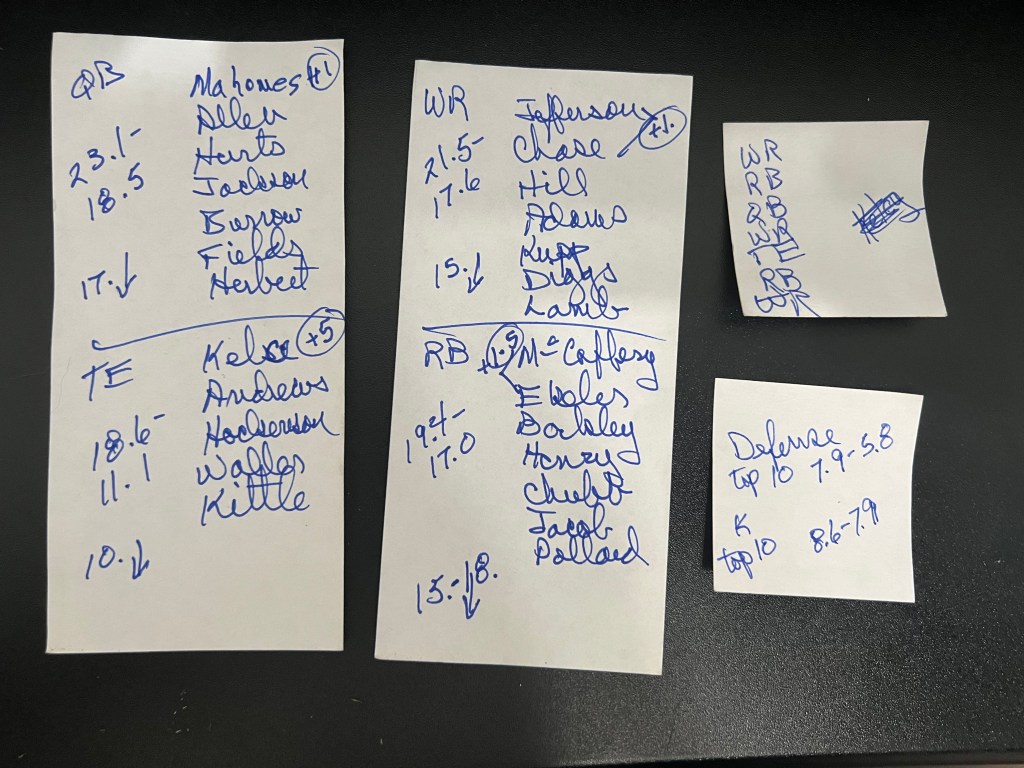 QB Mahomes +1
Allen
23.1- Hurts
18.5 Jackson
Burrow
Fields
17.↓ Herbert
TE Kelce +5
Andrews
18.6- Hockenson
11.1 Waller
Kittle
10.↓
WR Jefferson
21.5- Chase +1.
17.6 Hill
Adams
Kupp
15.↓ Diggs
Lamb
RB +1.5 McCaffery
Ekeler
19.4- Barkley
17.0 Henry
Chubb
Jacob
Pollard
15.-18.↓
WR
RB
Defense
top 10 7.9-5.8
K
top 10 8.6-7.9